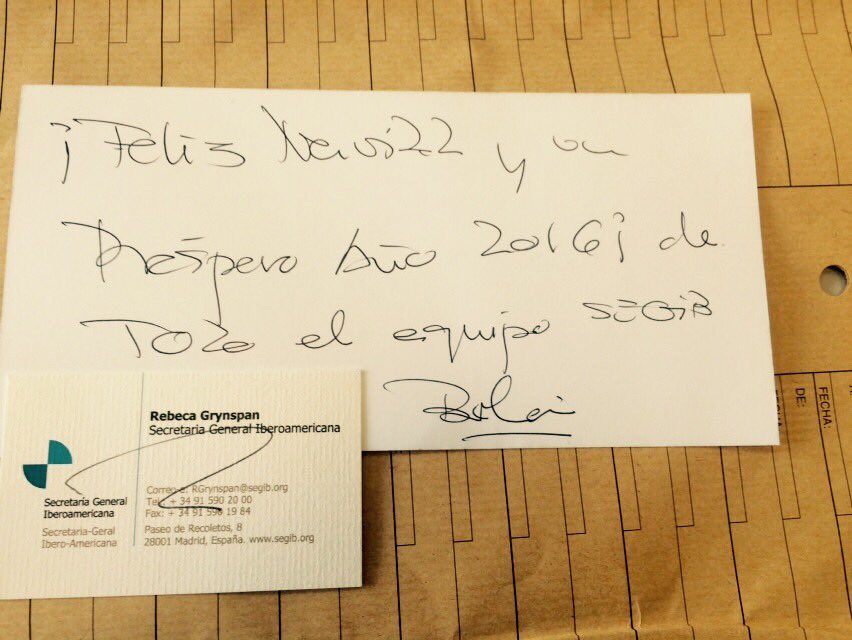 ¡Feliz Navidad y un
Próspero Año 2016¡ de
Todo el equipo SEGIB
Rebeca Grynspan
Secretaria General Iberoamericana
Correo-e: RGrynspan@segib.org
Tel.: + 34 91 590 20 00
Fax: + 34 91 590 19 84
Paseo de Recoletos, 8
28001 Madrid, España. www.segib.org
Secretaría General
Iberoamericana
Secretaria-Geral
Ibero-Americana
FECHA:
DE: